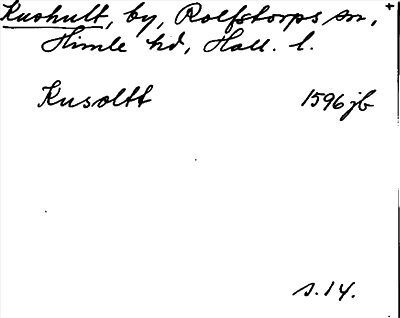 Kushult, by, Rolfstorps sn, +
Himle hd, Hall. l.
Kusoltt 1596 jb
s. 14.